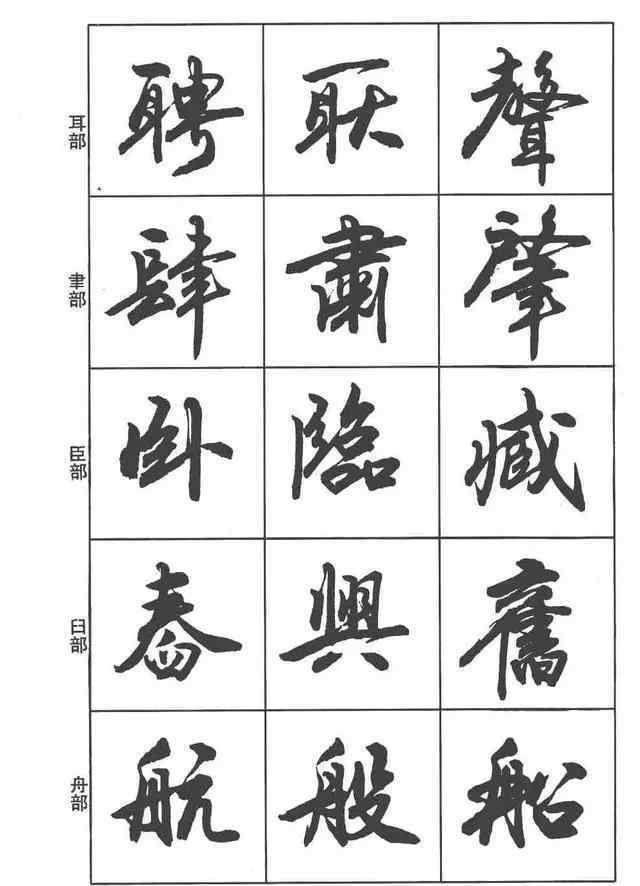 耳部 聘 耿 聲
聿部 肆 肅 肇
臣部 卧 臨 臧
臼部 舂 興 舊
舟部 航 般 船